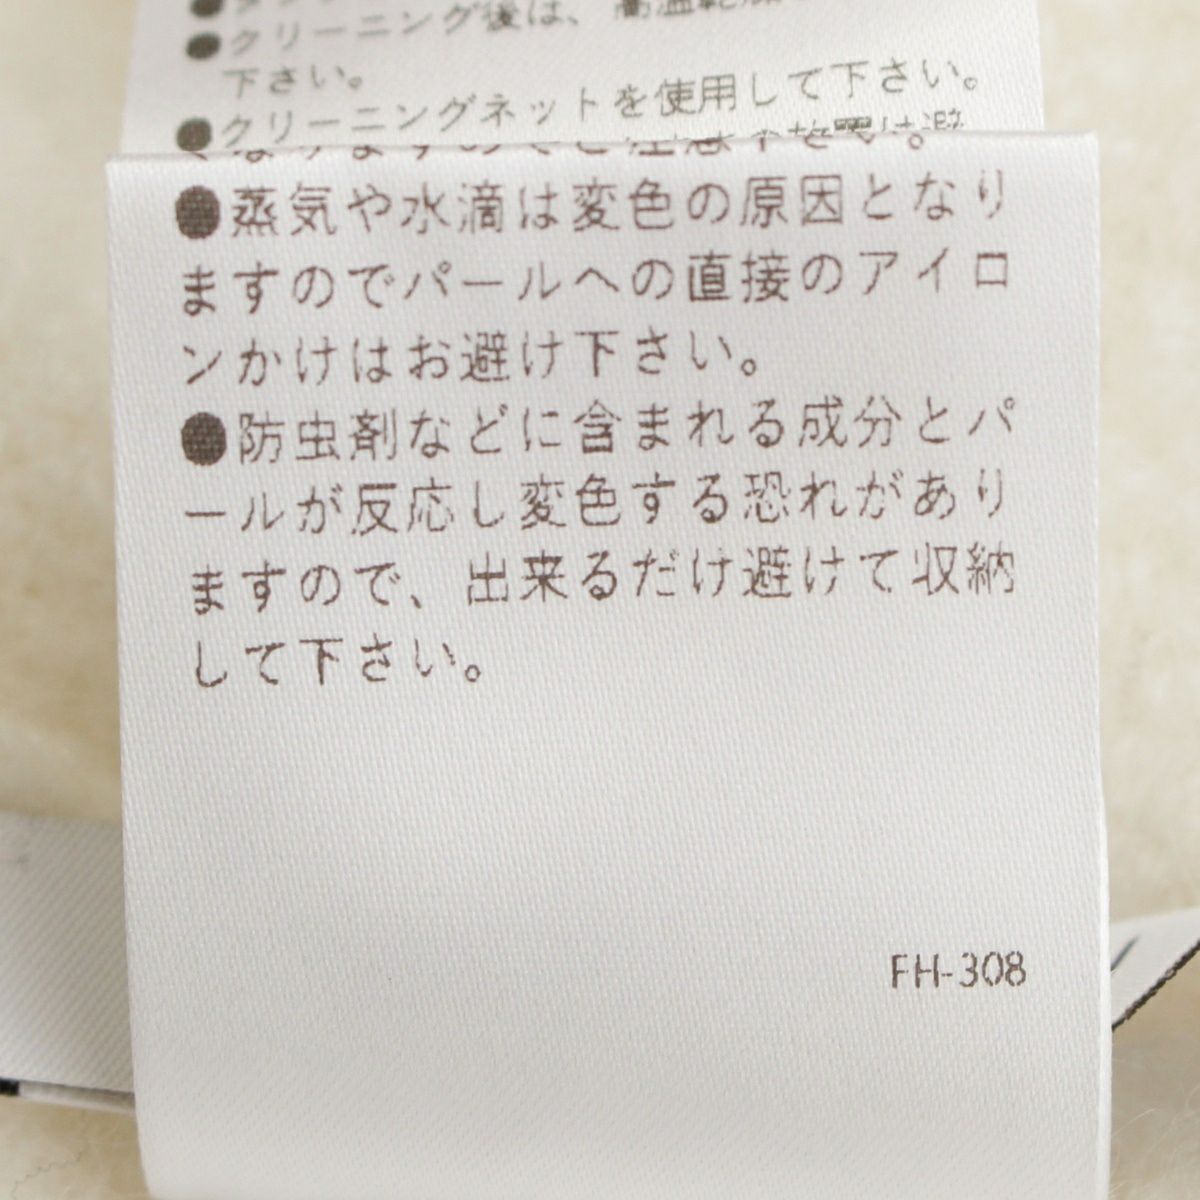 ●クリーニング後は、高温乾燥
下さい。
●クリーニングネットを使用して下さい。
なりますのでご注意下さい。
●蒸気や水滴は変色の原因となり
ますのでパールへの直接のアイロ
ンかけはお避け下さい。
●防虫剤などに含まれる成分とパ
ールが反応し変色する恐れがあり
ますので、出来るだけ避けて収納
して下さい。
FH-308